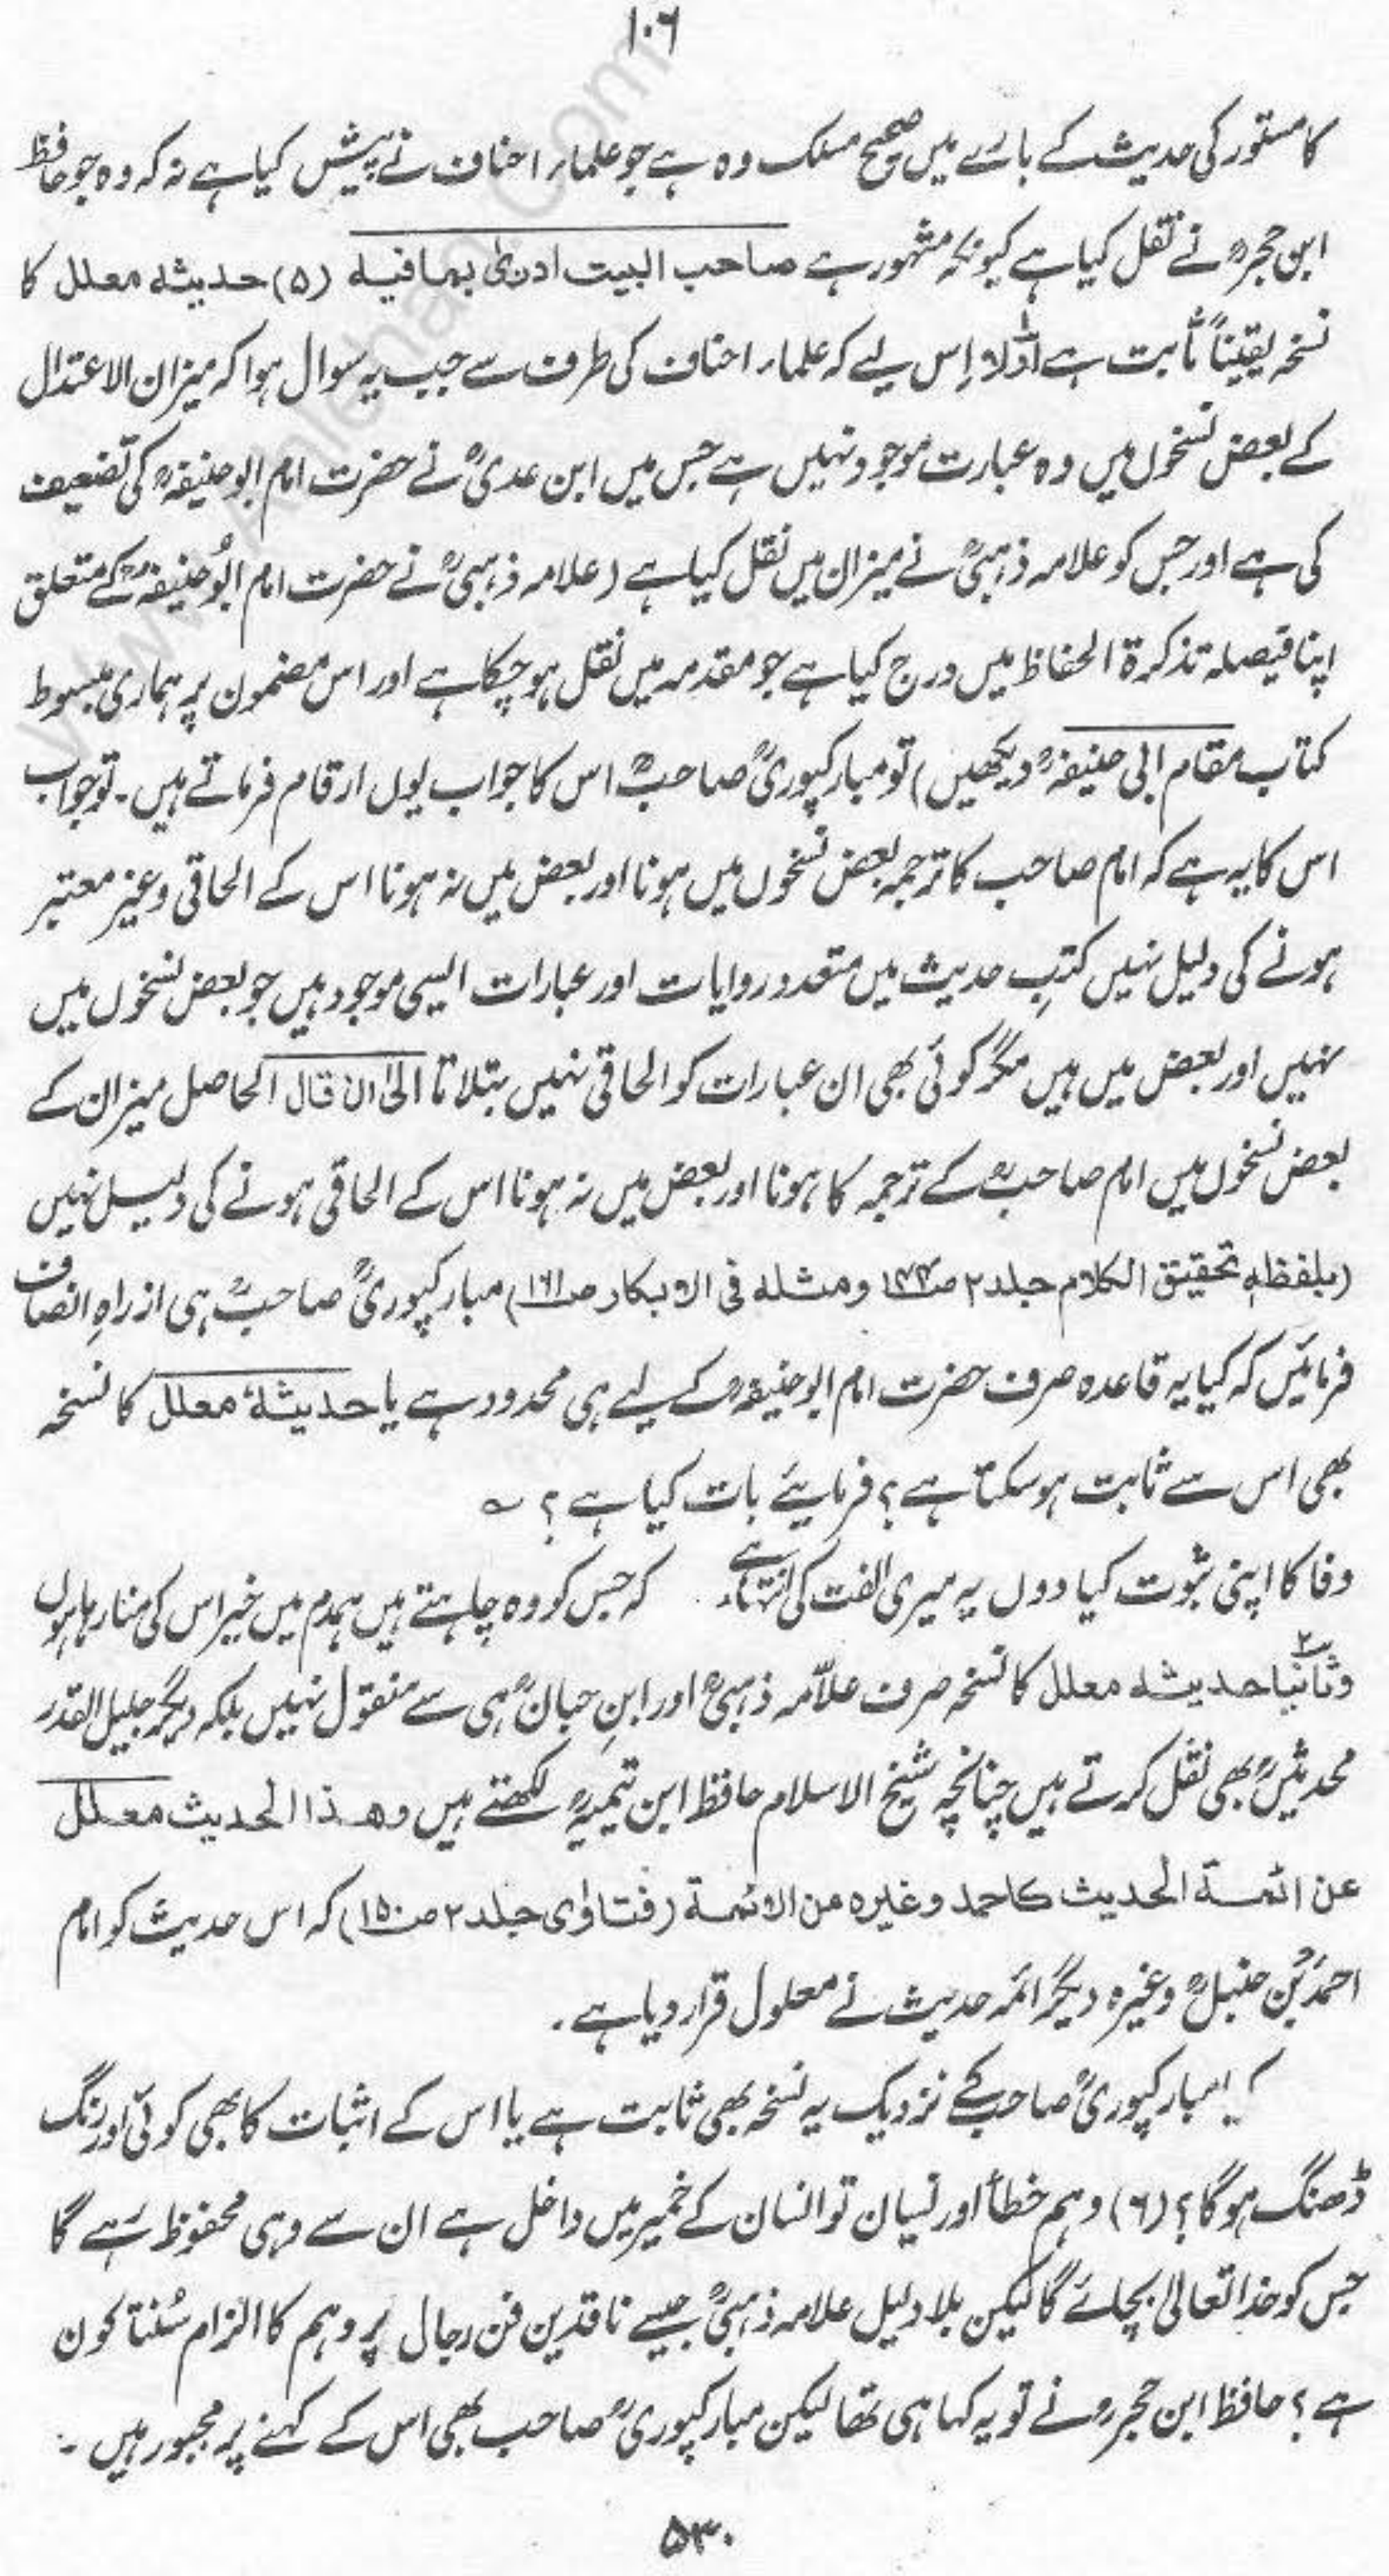 ۱۰۶
کا مستور کی حدیث کے بارے میں صحیح مسلک وہ ہے جو علماء احناف نے پیش کیا ہے نہ کہ وہ جو حافظ
ابن حجرؒ نے نقل کیا ہے کیونکہ مشہور ہے صاحب البیت ادریٰ بما فیہ (۵) حدیثہ معلل کا
نسخہ یقیناً ثابت ہے اوّلاً اِس لیے کہ علماء احناف کی طرف سے جب یہ سوال ہوا کہ میزان الاعتدال
کے بعض نسخوں میں وہ عبارت موجود نہیں ہے جس میں ابن عدیؒ نے حضرت امام ابو حنیفہؒ کی تضعیف
کی ہے اور جس کو علامہ ذہبیؒ نے میزان میں نقل کیا ہے (علامہ ذہبیؒ نے حضرت امام ابُو حنیفہؒ کے متعلق
اپنا فیصلہ تذکرۃ الحفاظ میں درج کیا ہے جو مقدمہ میں نقل ہو چکا ہے اور اس مضمون پر ہماری مبسوط
کتاب مقام ابی حنیفہؒ دیکھیں) تو مبارکپوریؒ صاحبؒ اس کا جواب یوں ارقام فرماتے ہیں۔ تو جواب
اس کا یہ ہے کہ امام صاحب کا ترجمہ بعض نسخوں میں ہونا اور بعض میں نہ ہونا اس کے الحاقی و غیر معتبر
ہونے کی دلیل نہیں کتبِ حدیث میں متعدد روایات اور عبارات ایسی موجود ہیں جو بعض نسخوں میں
نہیں اور بعض میں ہیں مگر کوئی بھی ان عبارات کو الحاقی نہیں بتلاتا الیٰ ان قال الحاصل میزان کے
بعض نسخوں میں امام صاحبؒ کے ترجمہ کا ہونا اور بعض میں نہ ہونا اس کے الحاقی ہونے کی دلیل نہیں
(بلفظہٖ تحقیق الکلام جلد ۲ ومثلہ فی الابکار ص۱۶۱) مبارکپوریؒ صاحبؒ ہی از راہِ انصاف
فرمائیں کہ کیا یہ قاعدہ صرف حضرت امام ابو حنیفہؒ کے لیے ہی محدود ہے یا حدیثہٗ معلل کا نسخہ
بھی اس سے ثابت ہو سکتا ہے؟ فرمایئے بات کیا ہے؟ ؎
وفا کا اپنی ثبوت کیا دوں یہ میری الفت کی انتہا ہے کہ جس کو وہ چاہتے ہیں ہمدم میں خیر اس کی منا رہا ہوں
وثانیاً حدیثہ معلل کا نسخہ صرف علاّمہ ذہبیؒ اور ابنِ حبانؒ ہی سے منقول نہیں بلکہ دیگر جلیل القدر
محدثینؒ بھی نقل کرتے ہیں چنانچہ شیخ الاسلام حافظ ابن تیمیہؒ لکھتے ہیں وھذا الحدیث معلل
عن ائمۃ الحدیث کاحمد وغیرہ من الائمۃ (فتاوٰی جلد ۲ ص۱۵۰) کہ اس حدیث کو امام
احمدؒ بن حنبلؒ وغیرہ دیگر ائمہ حدیث نے معلول قرار دیا ہے۔
کیا مبارکپوریؒ صاحبؒ کے نزدیک یہ نسخہ بھی ثابت ہے یا اس کے اثبات کا بھی کوئی اور رنگ
ڈھنگ ہو گا؟ (۶) وہم خطأ اور نسیان تو انسان کے خمیر میں داخل ہے ان سے وہی محفوظ رہے گا
جس کو خدا تعالیٰ بچائے گا لیکن بلا دلیل علامہ ذہبیؒ جیسے ناقدین فن رجال پر وہم کا الزام سُنتا کون
ہے؟ حافظ ابن حجرؒ نے تو یہ کہا ہی تھا لیکن مبارکپوریؒ صاحب بھی اس کے کہنے پر مجبور ہیں ۔
۵۳۰